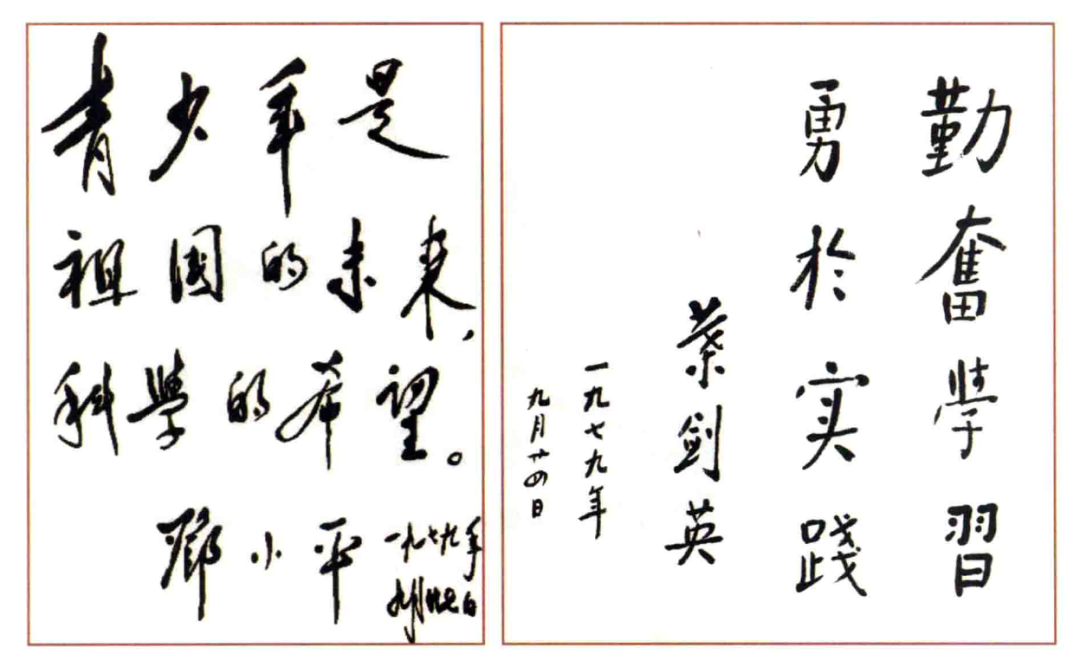 青少年是
祖國的未来，
科學的希望。
鄧小平 一九七九年
九月
勤奮學習
勇於实踐
葉剑英
一九七九年
九月廿四日